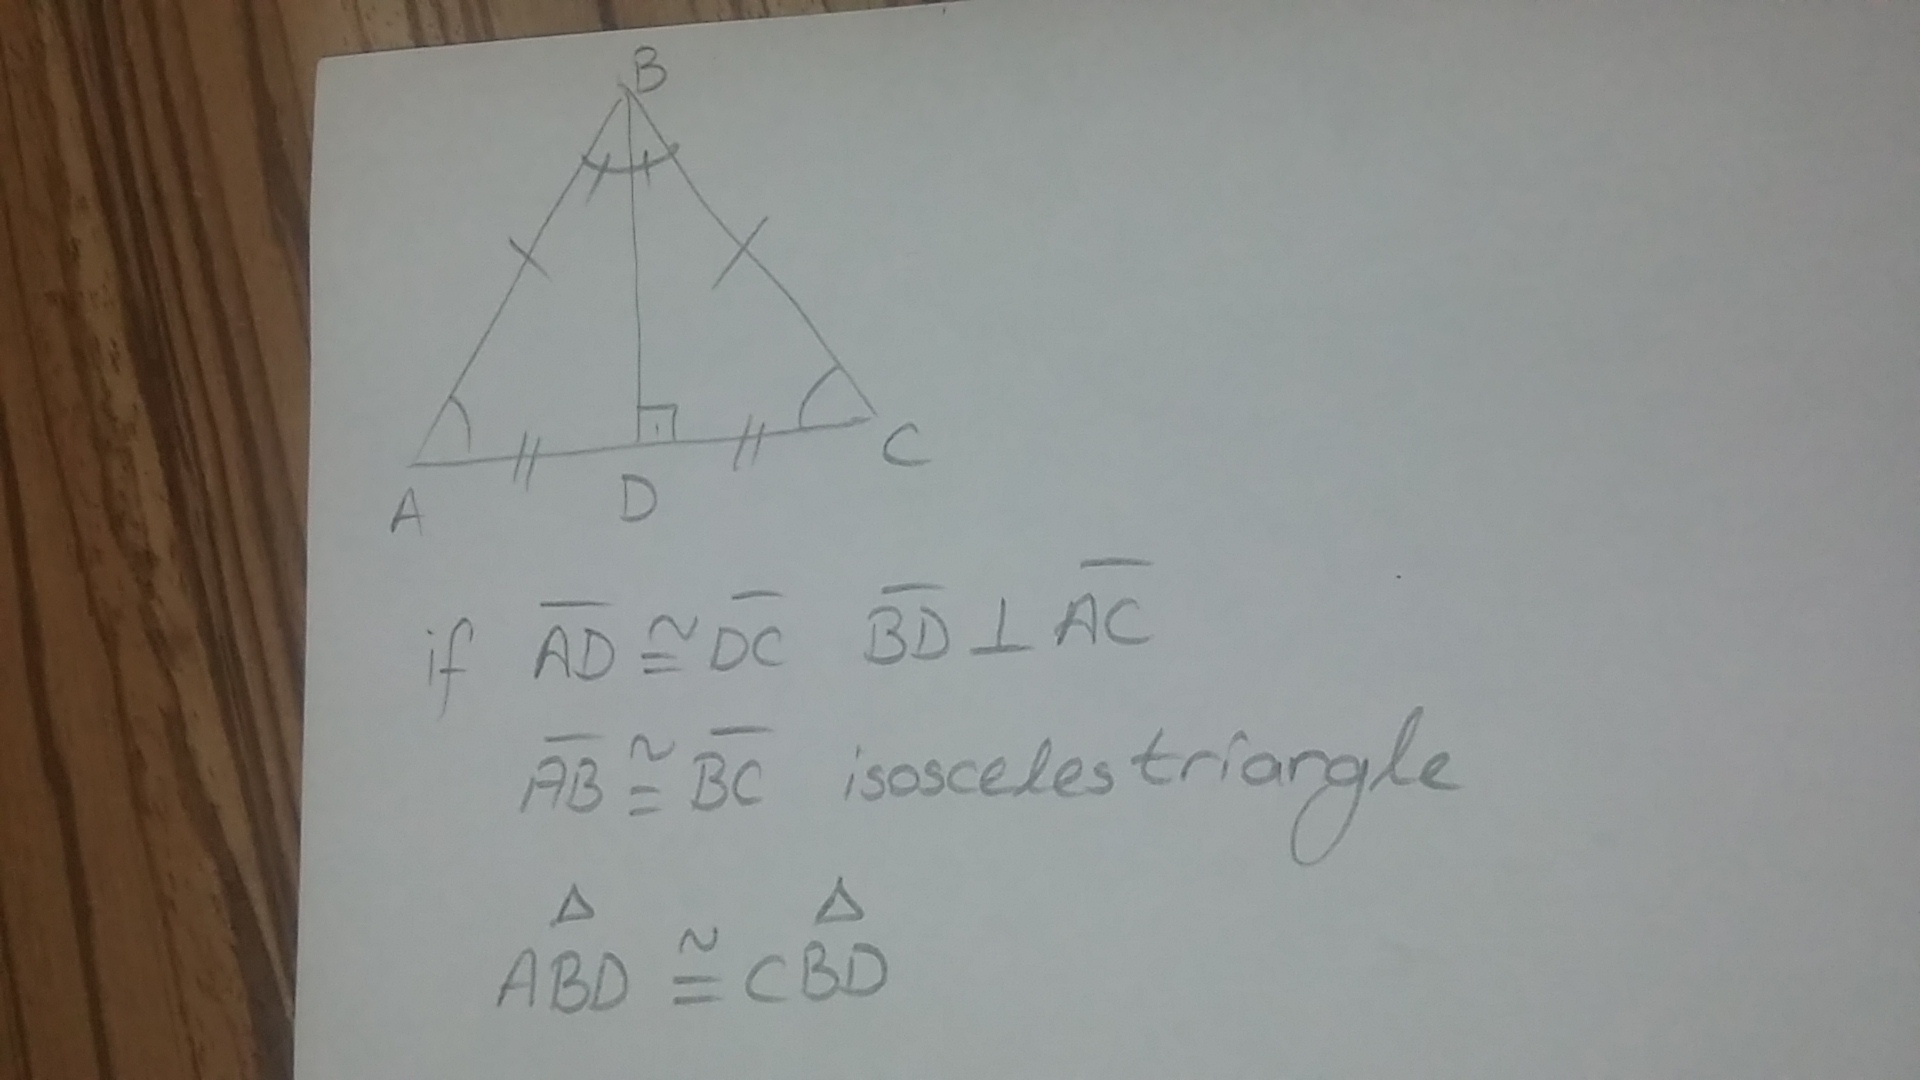 B
A
D
C
if A̅D̅ ≅ D̅C̅ B̅D̅ ⊥ A̅C̅
A̅B̅ ≅ B̅C̅ isosceles triangle
Δ Δ
ABD ≅ CBD